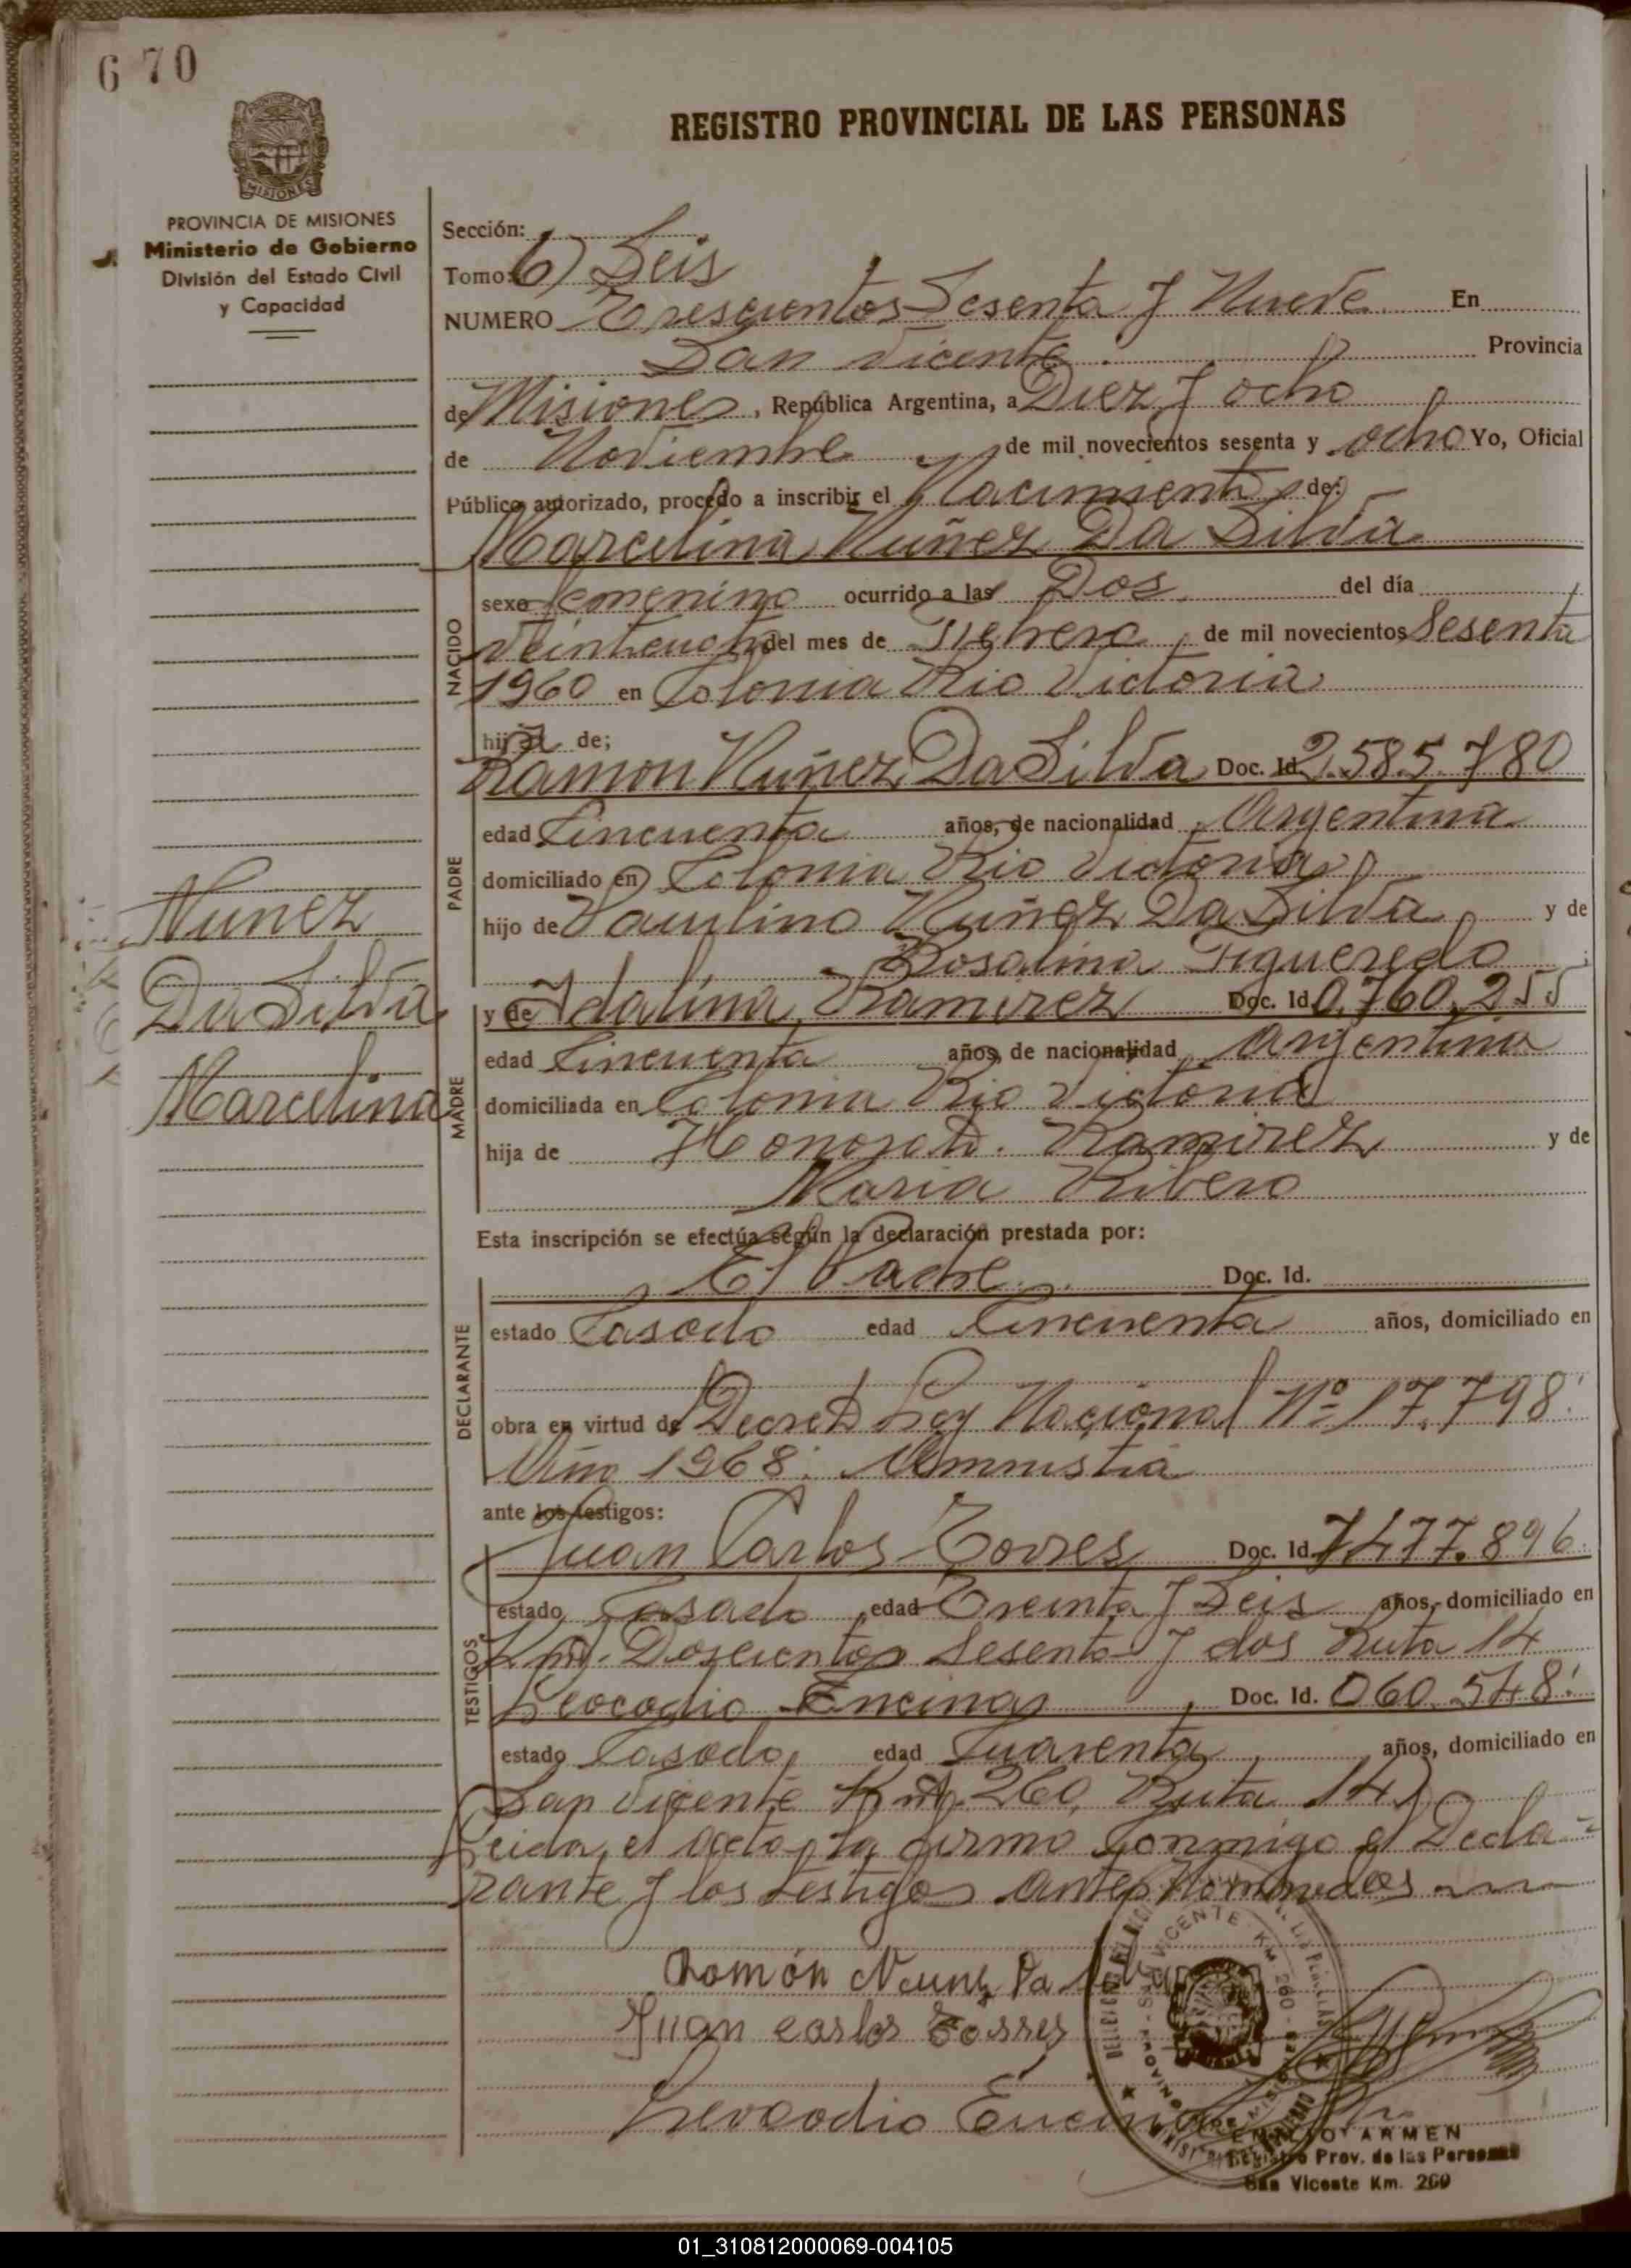 6 70
REGISTRO PROVINCIAL DE LAS PERSONAS
MISIONES
PROVINCIA DE MISIONES
Ministerio de Gobierno
División del Estado Civil
y Capacidad
Nuñez
Da Silva
Marcelina
Sección:
Tomo: 6) Seis
NUMERO Trescientos Sesenta y Nueve En
San Vicente Provincia
de Misiones, República Argentina, a Diez y ocho
de Noviembre de mil novecientos sesenta y ocho Yo, Oficial
Público autorizado, procedo a inscribir el Nacimiento de:
Marcelina Nuñez Da Silva
NACIDO
sexo femenino ocurrido a las Dos del día
Veintiocho del mes de Febrero de mil novecientos Sesenta
1960 en Colonia Rio Victoria
hija de;
PADRE
Ramon Nuñez Da Silva Doc. Id. 2.585.780
edad Cincuenta años, de nacionalidad Argentina
domiciliado en Colonia Rio Victoria
hijo de Paulino Nuñez Da Silva y de
Rosalina Figueredo
MADRE
y de Idalina Ramirez Doc. Id. 0.760.255
edad Cincuenta años, de nacionalidad Argentina
domiciliada en Colonia Rio Victoria
hija de Honorato Ramirez y de
Maria Ribero
Esta inscripción se efectúa según la declaración prestada por:
DECLARANTE
El Padre Doc. Id.
estado Casado edad Cincuenta años, domiciliado en
obra en virtud de Decreto Ley Nacional Nº 17.798
Año 1968. Amnistia
ante los testigos:
TESTIGOS
Juan Carlos Torres Doc. Id. 7.477.896
estado Casado edad Treinta y Seis años, domiciliado en
Km. Doscientos Sesenta y dos Ruta 14
Leocodio Encinas, Doc. Id. 060.548
estado Casado, edad Cuarenta años, domiciliado en
San Vicente Km. 260, Ruta 14)
Leida el acta, la firma conmigo el Decla-
rante y los testigos antes Nombrados
Ramón Nunez Da Silva
Juan carlos Torres
Leocodio Encina
SAN VICENTE - KM 260
PROVINCIA DE MISIONES
ARMEN
Registro Prov. de las Personas
San Vicente Km. 260
01_310812000069-004105